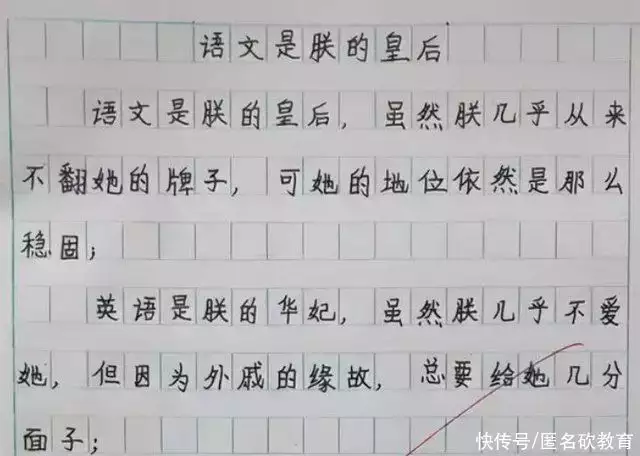 语文是朕的皇后
语文是朕的皇后，虽然朕几乎从来
不翻她的牌子，可她的地位依然是那么
稳固；
英语是朕的华妃，虽然朕几乎不爱
她，但因为外戚的缘故，总要给她几分
面子；
快传号/匿名砍教育